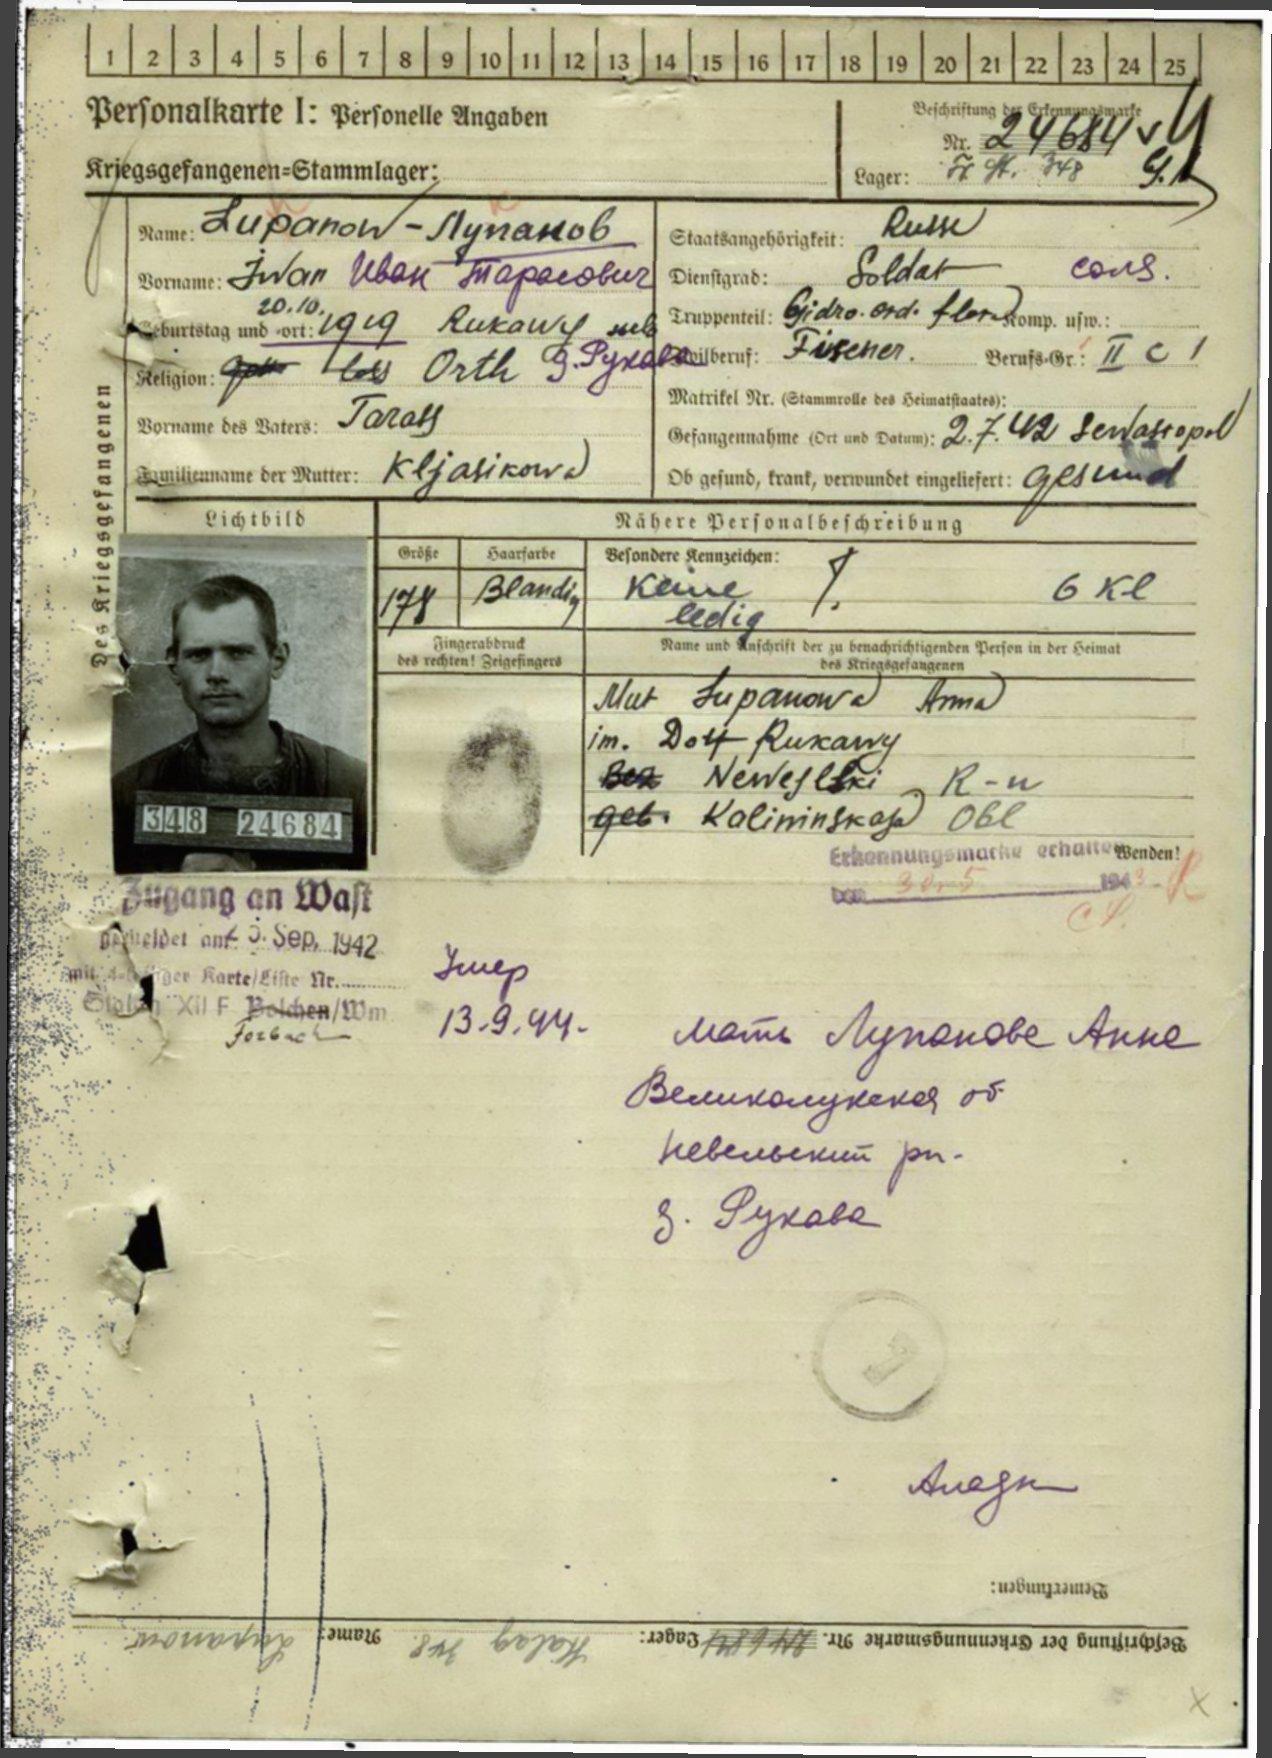 1 2 3 4 5 6 7 8 9 10 11 12 13 14 15 16 17 18 19 20 21 22 23 24 25
Personalkarte I: Personelle Angaben
Beschriftung der Erkennungsmarke
Nr. 24684
Kriegsgefangenen-Stammlager:
Lager: 348
Des Kriegsgefangenen
Name: Lupanow - Лупанов
Vorname: Iwan Иван Тарасович
20.10.
Geburtstag und -ort: 1919 Rukawy
Religion: Orth д. Рукава
Vorname des Vaters: Tarass
Familienname der Mutter: Kljasikowa
Staatsangehörigkeit: Russe
Dienstgrad: Soldat солд.
Truppenteil: Gidro. ord. Komp. usw.:
Zivilberuf: Berufs-Gr.: II c 1
Matrikel Nr. (Stammrolle des Heimatstaates):
Gefangennahme (Ort und Datum): 2.7.42 Sewastopol
Ob gesund, krank, verwundet eingeliefert: gesund
Lichtbild
Nähere Personalbeschreibung
Größe
Haarfarbe
Besondere Kennzeichen:
178
Blandig
Keine
6 Kl
ledig
Fingerabdruck
des rechten! Zeigefingers
Name und Anschrift der zu benachrichtigenden Person in der Heimat
des Kriegsgefangenen
Mut Lupanowa Anna
im. Dorf Rukawy
Newelski R-n
geb. Kalininskaja Obl
348 24684
Wenden!
Erkennungsmarke erhalten
den 30.5 1943.
Zugang an Wast
gemeldet am: 5. Sep. 1942
mit 4-teiliger Karte/Liste Nr.
Stalag XII F Bolchen/Wm
Forbach
Умер
13.9.44.
мать Лупанова Анна
Великолукская об
Невельский рн.
д. Рукава
Bemerkungen:
Beschriftung der Erkennungsmarke Nr. 24684 Lager: Stalag 348 Name: Lupanow